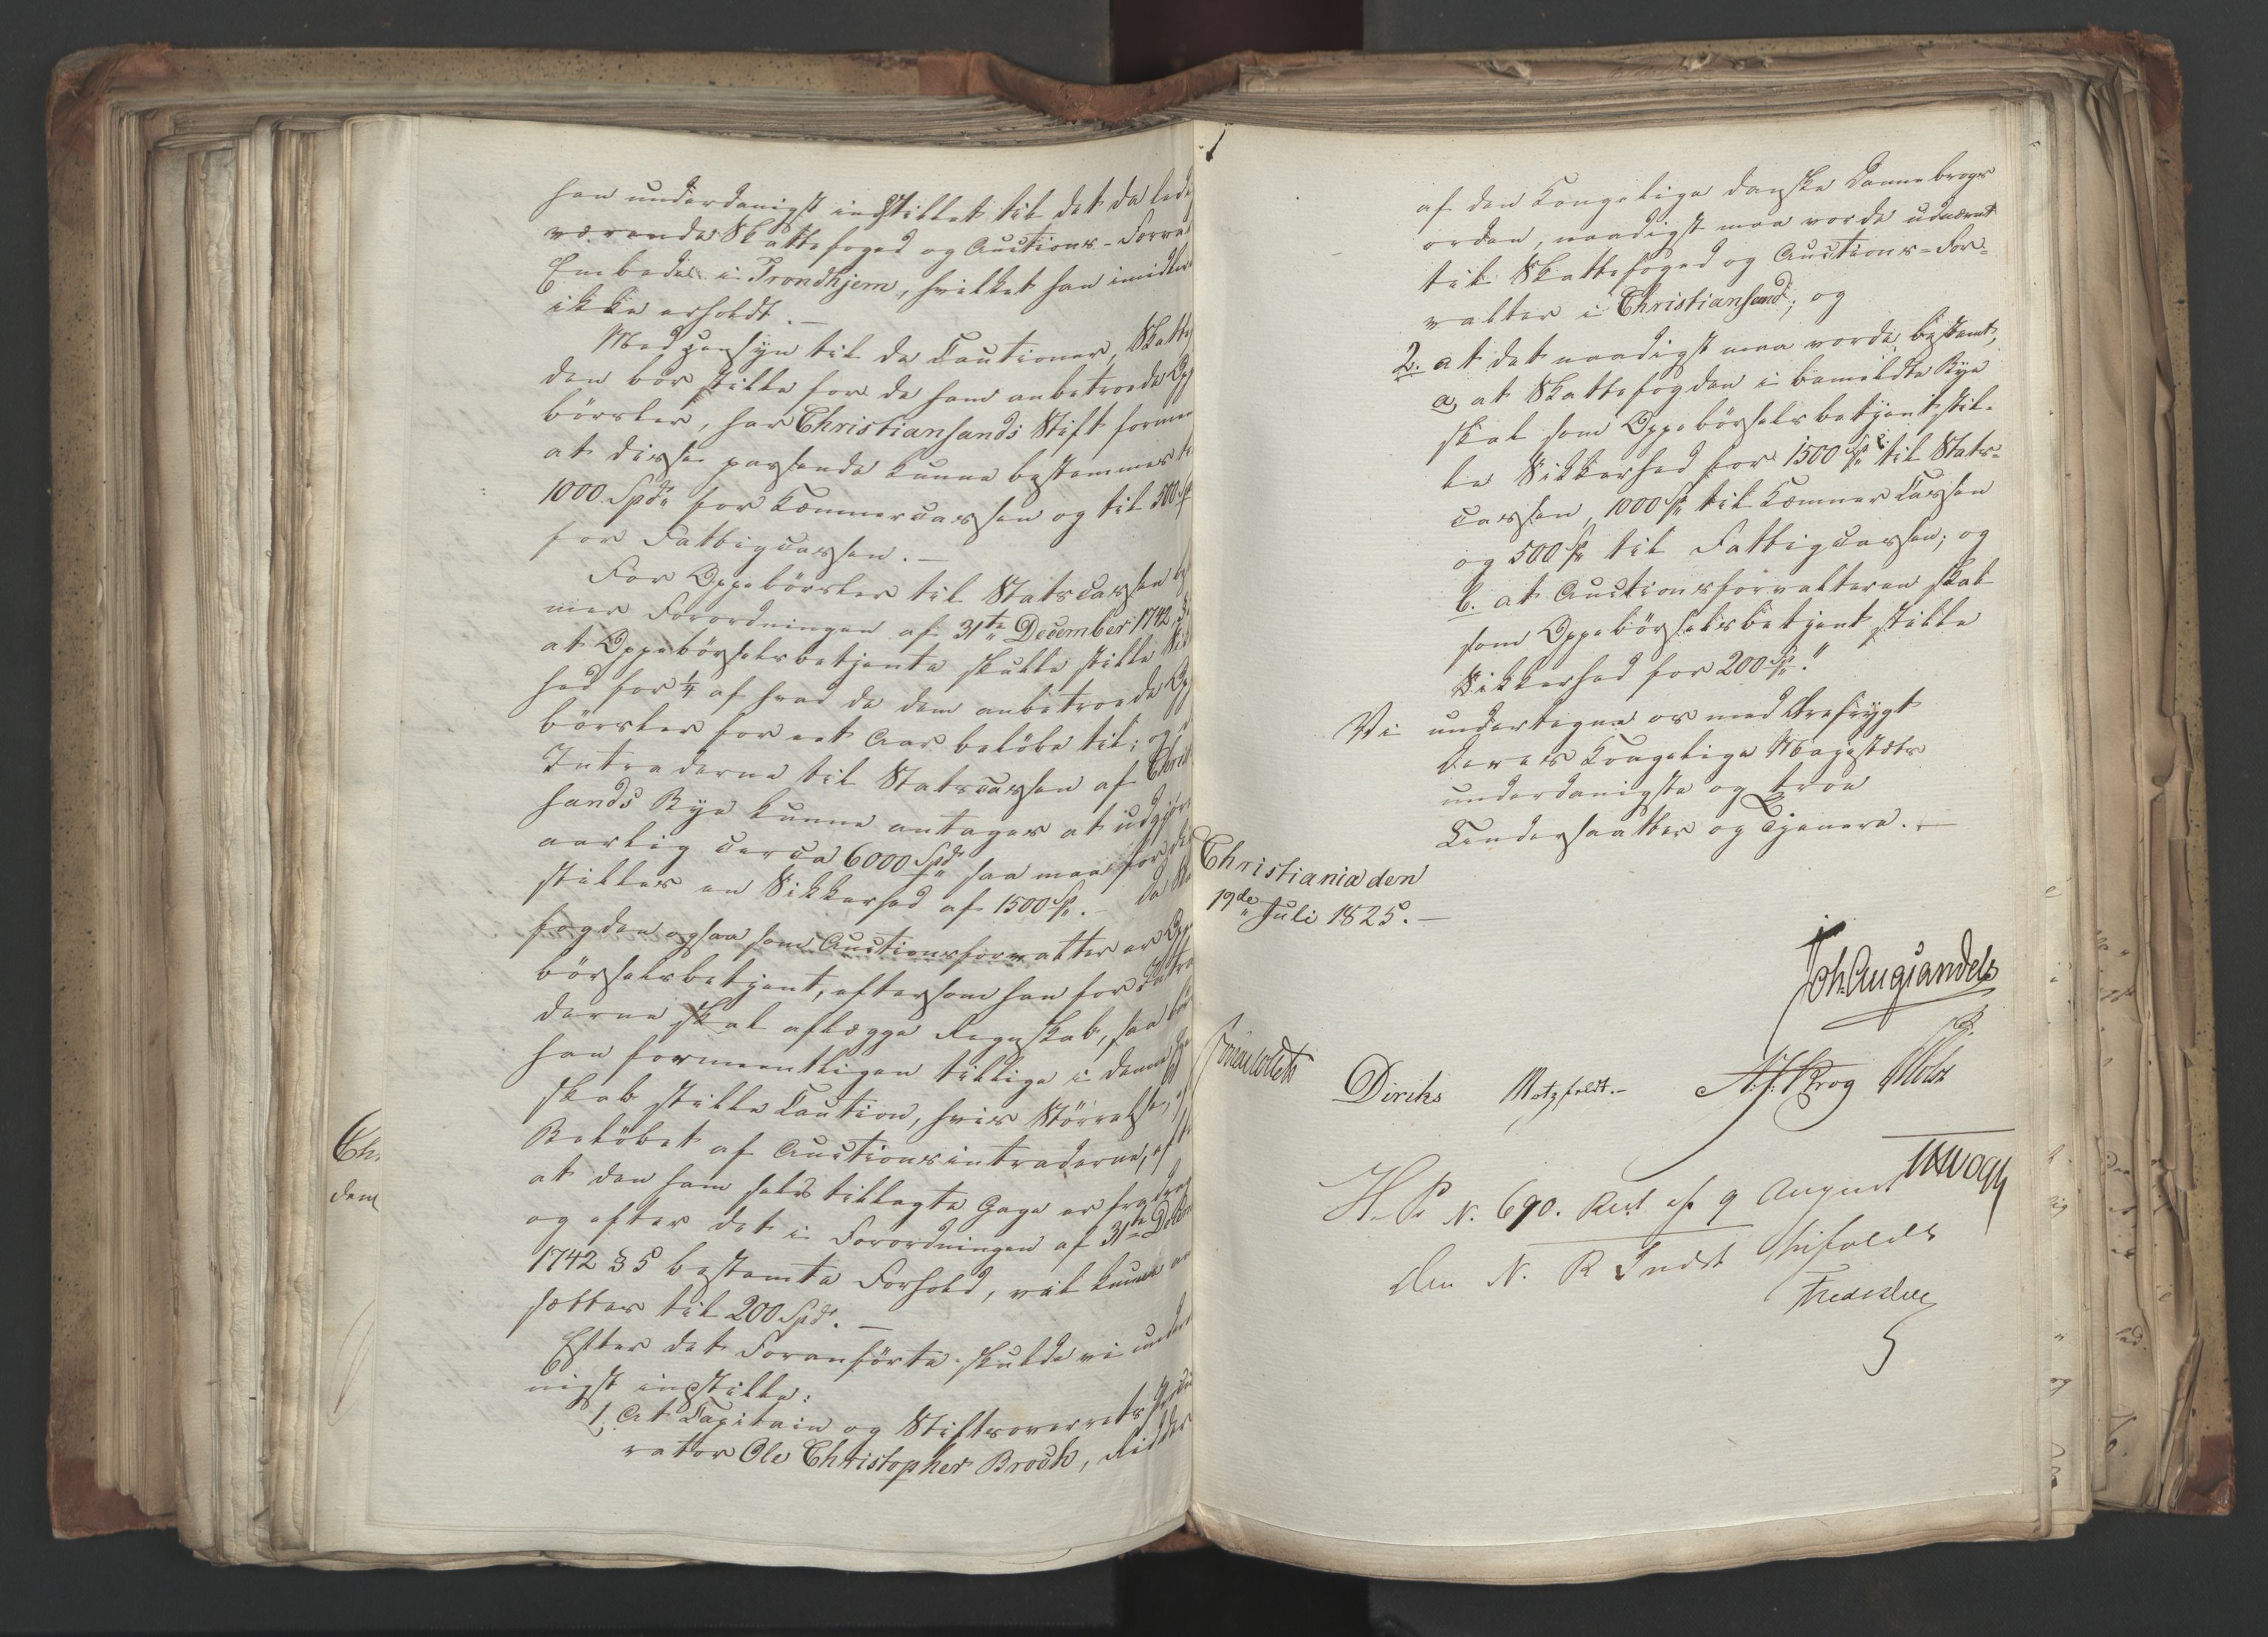 han underdanigst indstillet til det da ledig
værende Skattefoged og Auctions-Forval
Embede i Trondhjem, hvilket han imidler
ikke erholdt. —
Med Hensyn til de Cautioner, Skattefog
den bör stille for de ham anbetroede Op
börsler, har Christiansands Stift formeen
at disse passende kunne bestemmes til
1000 Spd. for Kæmnercassen og til 500 Sp
for Fattigcassen. —
For Oppebörsler til Statscassen bestem
mer Forordningen af 31te December 1742,
at Oppebörselsbetjente skulle stille Sikker
hed for 1/4 af hvad de dem anbetroede Op
börsler for eet Aar beløbe til; og da
Intraderne til Statscassen af Christian
sands Bye kunne antages at udgjøre
aarlig circa 6000 Spd. saa maa for disse
stilles en Sikkerhed af 1500 Sp. — Da Skatte
fogden ogsaa som Auctionsforvalter er Oppe
börselsbetjent, eftersom han for Intra
derne skal aflægge Regnskab, saa bör
han formeentligen tillige i denne Egen
skab stille Caution, hvis Störrelse, af
Belöbet af Auctionsintraderne, efter
at den ham selv tillagte Gage er fradraget
og efter det i Forordningen af 31te Decem
1742 § 5 bestemte Forhold, vil kunne an
sættes til 200 Spd. —
Efter det Foranförte skulde vi underda
nigst indstille:
1, At Capitain og Stiftsoverrets Procu
rator Ole Christopher Broch, Ridder
af den Kongelige danske Dannebrogs
orden, naadigst maa vorde udnævnt
til Skattefoged og Auctions-For-
valter i Christiansand; og
2. at det naadigst maa vorde bestemt,
a, at Skattefogden i bemeldte Bye
skal som Oppebörselsbetjent stil-
le Sikkerhed for 1500 Sp. til Stats-
cassen, 1000 Sp. til Kæmner Cassen
og 500 Sp. til Fattigcassen; og
b. at Auctionsforvalteren skal
som Oppebörselsbetjent stille
Sikkerhed for 200 Sp."
Vi undertegne os med Ærefrygt
Deres Kongelige Majestæts
underdanigste og troe
Undersaatter og Tjenere. —
Christiania den
19de Juli 1825. —
Joh. Aug Sandels
Diriks Motzfeldt. — Krog Holst
H. P. N. 690. Res. af 9 August
den N. R. Indst bifaldes
Chr
dem